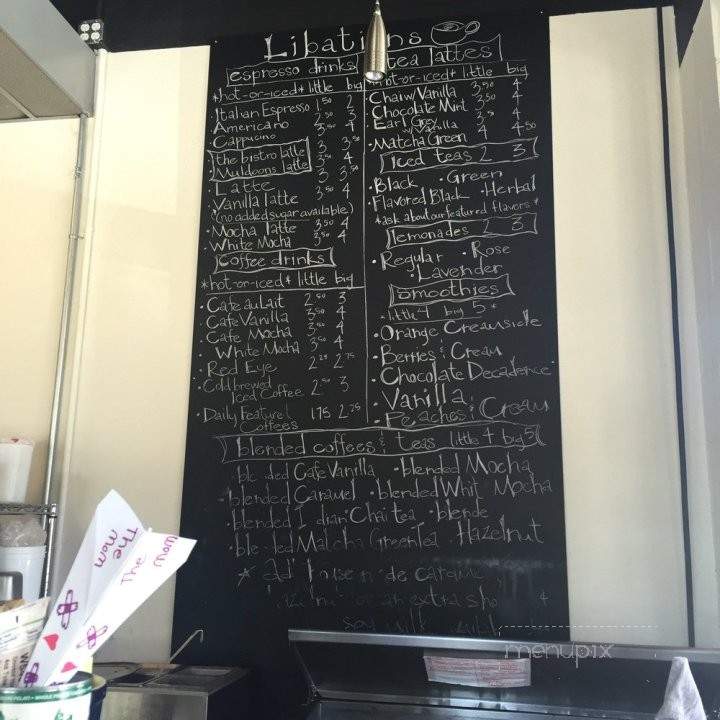 Libations
espresso drinks
*hot-or-iced* little big
• Italian Espresso 1.50 2
• Americano 2.50 3
• Cappucino 3.50 4
the bistro latte 3 3.50
Muldoons latte 3.50 4
• Latte 3 3.50
• Vanilla latte 3.50 4
(no added sugar available)
• Mocha latte 3.50 4
• White Mocha 3.50 4
coffee drinks
*hot-or-iced* little big
• Cafe au lait 2.50 3
• Cafe Vanilla 3.50 4
• Cafe Mocha 3.50 4
• White Mocha 3.50 4
• Red Eye 2.25 2.75
• Cold brewed
Iced Coffee 2.50 3
• Daily Feature 1.75 2.25
Coffees
tea lattes
hot-or-iced* little big
• Chai w/ Vanilla 3.50 4
• Chocolate Mint 3.50 4
• Earl Grey
w/ Vanilla 3.5 4
• Matcha Green 4 4.50
Iced teas 2 3
• Black • Green
• Flavored Black • Herbal
*ask about our featured flavors*
lemonades 2 3
• Regular • Rose
• Lavender
Smoothies
*little 4 big 5*
• Orange Creamsicle
• Berries & Cream
• Chocolate Decadence
• Vanilla
• Peaches & Cream
blended coffees & teas little 4 big 5
Cafe Vanilla • blended Mocha
• blended Caramel • blended Whit Mocha
• blended Chai tea
Matcha Green Tea Hazelnut
extra sho
The Mom
The Mom
menupix